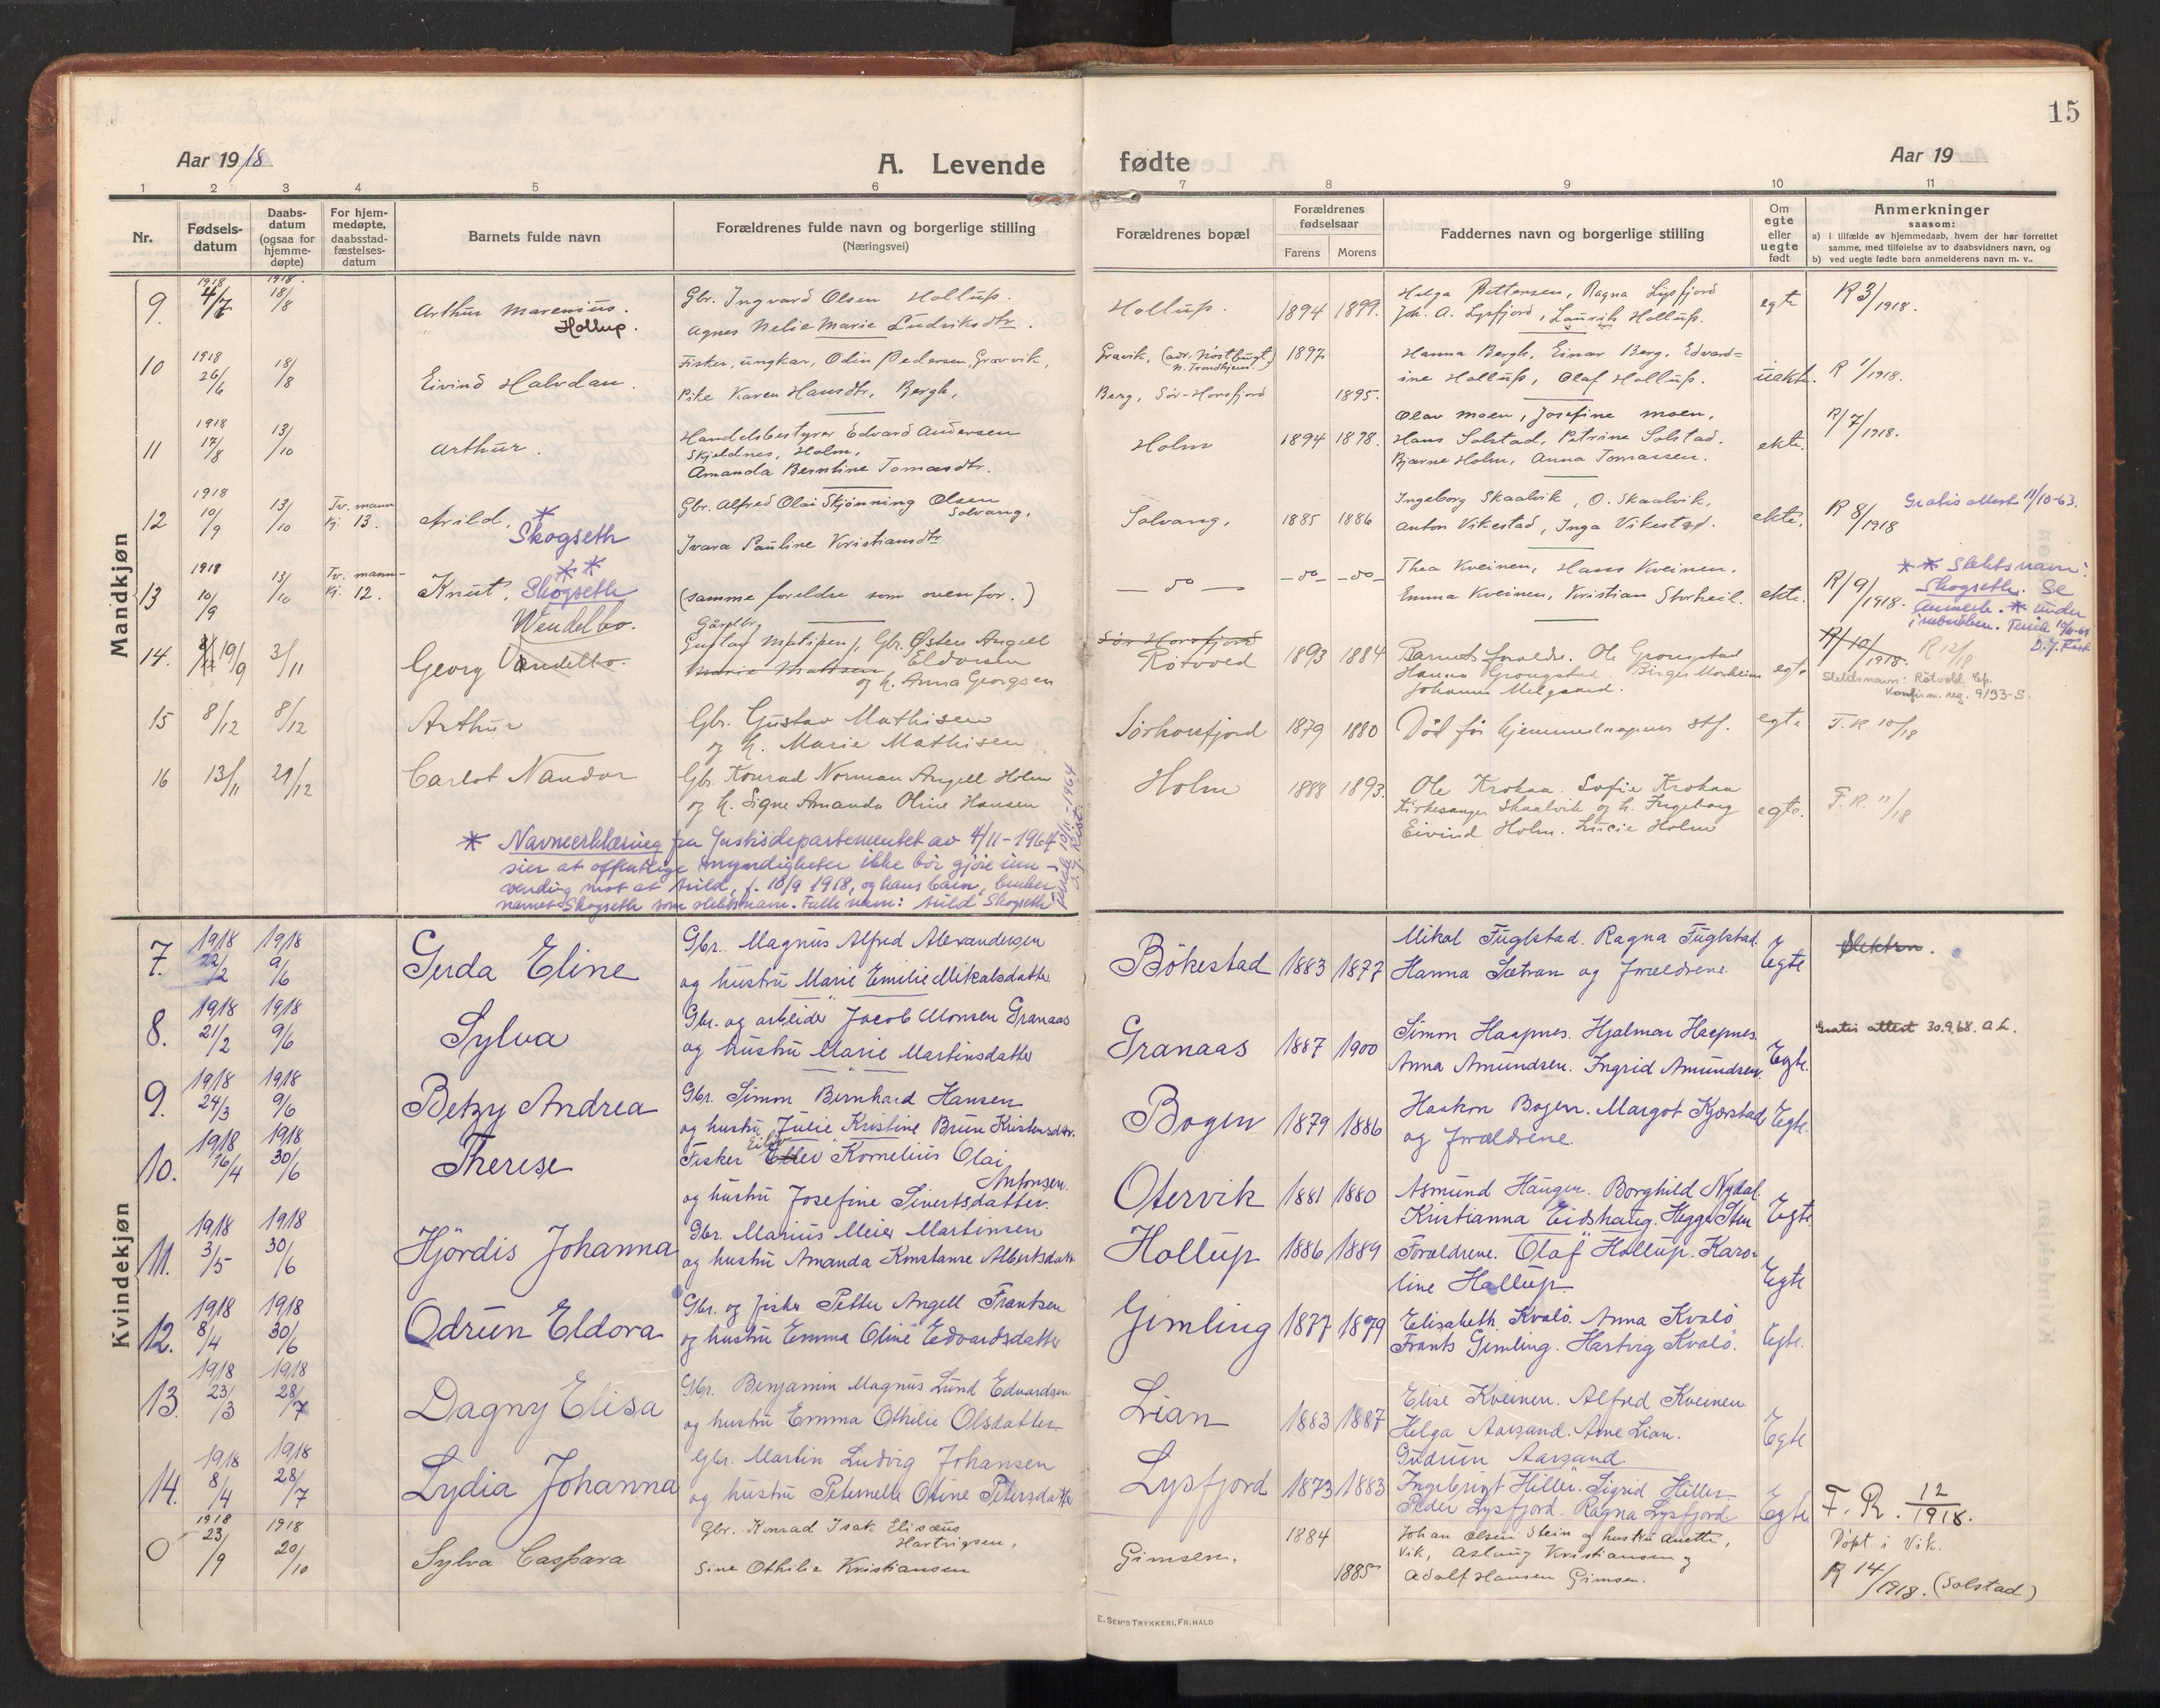 15
Aar 1918
A. Levende fødte
Aar 19
1 2 3 4 5 6 7 8 9 10 11
Nr.
Fødsels-
datum
Daabs-
datum
(ogsaa for
hjemme-
døpte)
For hjem-
medøpte,
daabsstad-
fæstelses-
datum
Barnets fulde navn
Forældrenes fulde navn og borgerlige stilling
(Næringsvei)
Forældrenes bopæl
Forældrenes
fødselsaar
Farens Morens
Faddernes navn og borgerlige stilling
Om
egte
eller
uegte
født
Anmerkninger
saasom:
a) i tilfælde av hjemmedaab, hvem der har forrettet
samme, med tilføielse av to daabsvidners navn, og
b) ved uegte fødte barn anmelderens navn m. v..
Mandkjøn
9. 1918 4/7 1918. 18/8
Arthur Marenius.
Hollup.
Gbr. Ingvard Olsen Hollup.
Agnes Nelie Marie Ludriksdtr.
Hollup. 1894 1899.
Helga Pettersen, Ragna Lysfjord
Joh. A. Lysfjord, Laurits Hollup.
egte
R 3/1918.
10 1918 26/6 18/8
Eivind Halvdan.
Fisker, ungkar, Odin Pedersen Gravvik,
Pike Karen Hansdtr. Bergh,
Gravik, (adr. Nöstbugt,
N. Trondhjem.) 1897
Berg, Sør-Horsfjord 1895.
Hanna Bergh, Einar Berg. Edvard=
ine Hollup, Olaf Hollup.
uekt.
R 1/1918.
11 1918 17/8 13/10
Arthur.
Handelsbestyrer Edvard Andersen
Skjeldnes, Holm,
Amanda Berntine Tomasdtr.
Holm 1894 1898.
Olav Moen, Josefine Moen,
Hans Solstad, Petrine Solstad.
Bjarne Holm, Anna Tomassen.
ekte.
R/7/1918.
12 1918 10/9 13/10 Tv. mann
kj. 13.
Arild. * Skogseth
Gbr. Alfred Olai Skjønning Olsen
Solvang.
Ivara Pauline Kristiansdtr
Solvang, 1885 1886
Ingeborg Skaalvik, O. Skaalvik,
Anton Vikestad, Inga Vikestad.
ekte.
R 8/1918
Gratis attest 11/10-63.
13 1918 10/9 13/10 Tv. mann-
kj. 12.
Knut. ** Skogseth
(samme foreldre som ovenfor.)
— do — -do- -do-
Thea Kveinen, Hans Kveinen.
Emma Kveinen, Kristian Storheil.
ekte.
R/9/1918.
** Slektsnavn:
Skogseth. Se
Anmerk. * under
14. 19/9 3/11
Wendelbo.
Georg Vendelbo.
Gaardbr.
Gustav Mathisen, Gbr. Østen Angell
Marie Mathisen Eldorsen
og h. Anna Georgsen
Sør Horsfjord
Rötvold 1893 1884
Barnets foreldre. Ole Grongstad
Hanna Grongstad. Birger Morheim
Johanna Melgaard.
egte
R/10/1918. R 12/18
Slektsnavn: Rötvold
Konfirm. reg. 9/33-S.
15 8/12 8/12
Arthur
Gbr. Gustav Mathisen
og h. Marie Mathisen
Sørhorsfjord 1879 1880
Död før hjemmedaapens stf.
egte
F. R 10/18
16 13/11 29/12
Carlot Nandor
Gbr. Konrad Norman Angell Holm
og h. Signe Amanda Oline Hansen
Holm 1888 1893.
Ole Krokaa. Sofie Krokaa
Kirkesanger Skaalvik og h. Ingeborg
Eivind Holm. Lucie Holm
egte.
F. R. 11/18
* Navneerklæring fra Justisdepartementet av 4/11-1964
sier at offentlige myndigheter ikke bör gjöre inn-
vending mot at Arild, f. 10/9 1918, og hans barn, bruker
navnet Skogseth som slektsnavn. Fulle navn: Arild Skogseth
Kvindekjøn
7. 1918 22/2 1918 9/6
Gerda Eline
Gbr. Magnus Alfred Alexandersen
og hustru Marie Emilie Mikalsdatter
Bökestad 1883 1877
Mikal Fuglstad. Ragna Fuglstad.
Hanna Sætran og forældrene.
Egte
8. 1918 21/2 1918 9/6
Sylva
Gbr. og arbeider Jacob Monsen Granaas
og hustru Marie Martinsdatter
Granaas 1887 1900
Simon Haapnes. Hjalmar Haapnes.
Anna Amundsen. Ingrid Amundsen.
Egte.
Gratis attest 30.9.68. A.L.
9. 1918 24/3 1918 9/6
Betzy Andrea
Gbr. Simon Bernhard Hansen
og hustru Julie Kristine Brun Kristensdtr.
Bogen 1879 1886
Haakon Bogen. Margot Kjærstad
og forældrene.
Egte.
10. 1918 16/4 1918 30/6
Therese
Fisker Eilev Kornelius Olai
Antonsen.
og hustru Josefine Sivertsdatter.
Otervik 1881 1880
Asmund Haugen. Borghild Nydal.
Kristianna Eidshaug. Hegge Sten
Egte.
11. 1918 3/5 1918 30/6
Hjördis Johanna
Gbr. Marius Meier Martinsen
og hustru Amanda Konstanse Albertsdatt
Hollup 1886 1889
Forældrene. Olaf Hollup. Karo-
line Hollup.
Egte
12. 1918 8/4 1918 30/6
Odrun Eldora
Gbr. og fisker Petter Angell Frantsen
og hustru Emma Oline Edvardsdatter
Gimling 1877 1879
Elisabeth Kvalö. Anna Kvalö
Frants Gimling. Hartvig Kvalö.
Egte.
13. 1918 23/3 1918 28/7
Dagny Elisa
Gbr. Benjamin Magnus Lund Edvardsen
og hustru Emma Othilie Olsdatter
Lian 1883 1887
Elise Kveinen. Alfred Kveinen
Helga Aarsand. Arne Lian.
Gudrun Aarsand
Egte
14. 1918 8/4 1918 28/7
Lydia Johanna
Gbr. Martin Ludvig Johansen
og hustru Peternelle Oline Petersdatter
Lysfjord 1873 1883
Ingebrigt Hiller. Sigrid Hiller
Peder Lysfjord. Ragna Lysfjord
Egte
F. R. 12/1918.
0 1918 23/9 1918 20/10
Sylva Caspara
Gbr. Konrad Isak Elisæus
Hartvigsen,
Sine Othilie Kristiansen
Gimsen. 1884 1885
Johan Olsen Stein og hustru Anette,
Vik, Aslaug Kristiansen og
Adolf Hansen Gimsen.
Döpt i Vik.
R 14/1918. (Solstad)
E. SEM'S TRYKKERI, FR. HALD